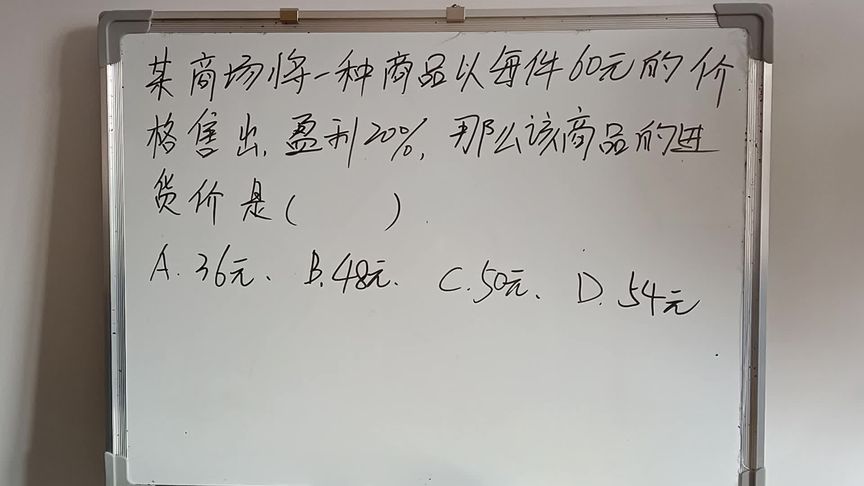 某商场将一种商品以每件60元的价
格售出,盈利20%,那么该商品的进
货价是( ).
A.36元、 B.48元. C.50元、 D.54元